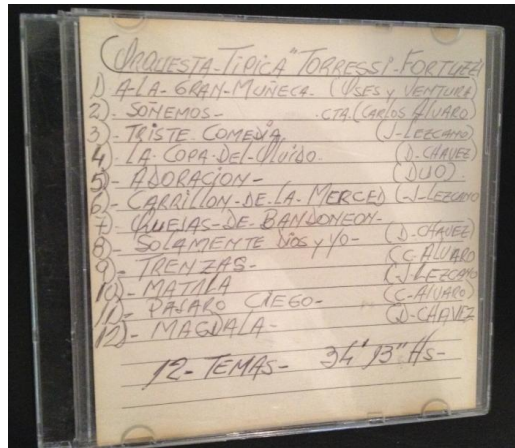 ORQUESTA-TIPICA "TORRESSI-FORTUZZI
1) A-LA-GRAN-MUÑECA- (USES y VENTURA)
2)- SOÑEMOS- -CTA.(CARLOS ALVARO)
3)- TRISTE-COMEDIA (J-LEZCANO)
4)- LA-COPA-DEL-OLVIDO- (D-CHAVEZ)
5)- ADORACION- (DUO)-
6)- CARRILLON-DE-LA-MERCED (-J-LEZCANO
7- QUEJAS-DE-BANDONEON-
8)- SOLAMENTE DIOS y YO- (D-CHAVEZ)
9)- TRENZAS- (C-ALVARO
10)- MATALA (-J-LEZCANO
11)- PAJARO CIEGO- (C-ALVARO)
12)- MAGDALA- (D-CHAVEZ
12-TEMAS- 34' 13" Hs-